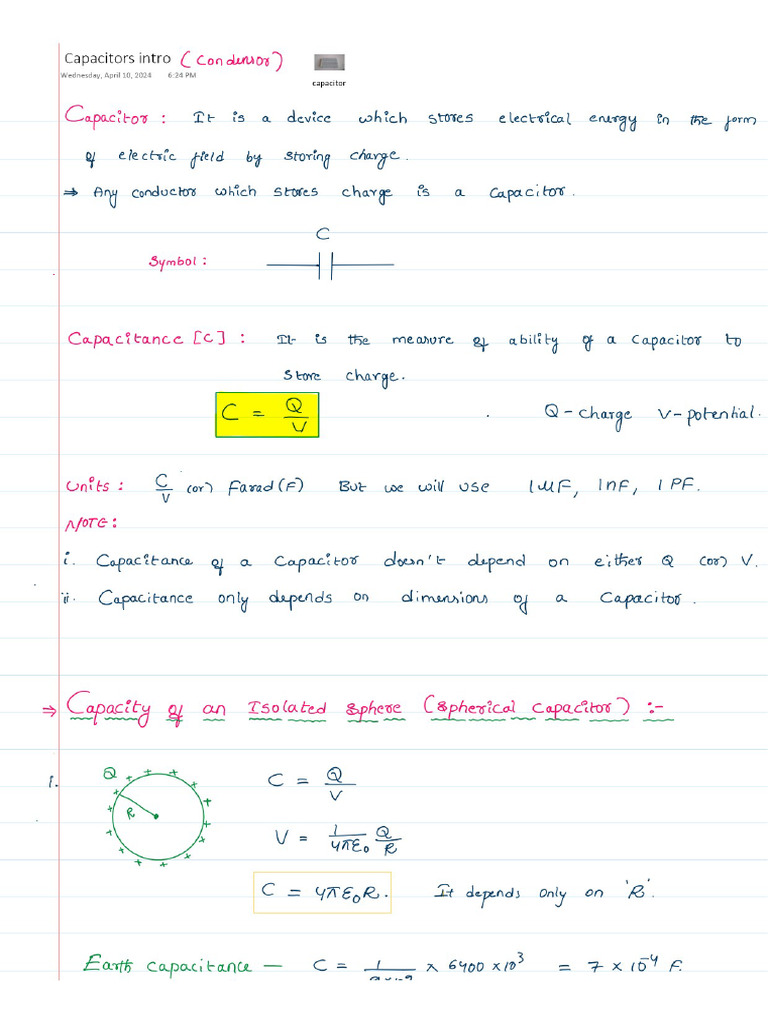 Capacitors intro (Condensor)
Wednesday, April 10, 2024 6:24 PM
capacitor
Capacitor : It is a device which stores electrical energy in the form
of electric field by storing charge.
⇒ Any conductor which stores charge is a capacitor.
C
Symbol :
Capacitance [C] : It is the measure of ability of a capacitor to
store charge.
C = Q/V . Q-charge V-potential.
Units : C/V (or) Farad(F) But we will use 1μF, 1nF, 1PF.
NOTE:
i. Capacitance of a capacitor doesn't depend on either Q (or) V.
ii. Capacitance only depends on dimensions of a capacitor.
⇒ Capacity of an Isolated sphere (spherical capacitor) :-
1. Q C = Q/V
R
V = 1/4πε₀ Q/R
C = 4πε₀R. It depends only on 'R'.
Earth capacitance — C = 1/9×10⁹ × 6400 ×10³ = 7 × 10⁻⁴ F.